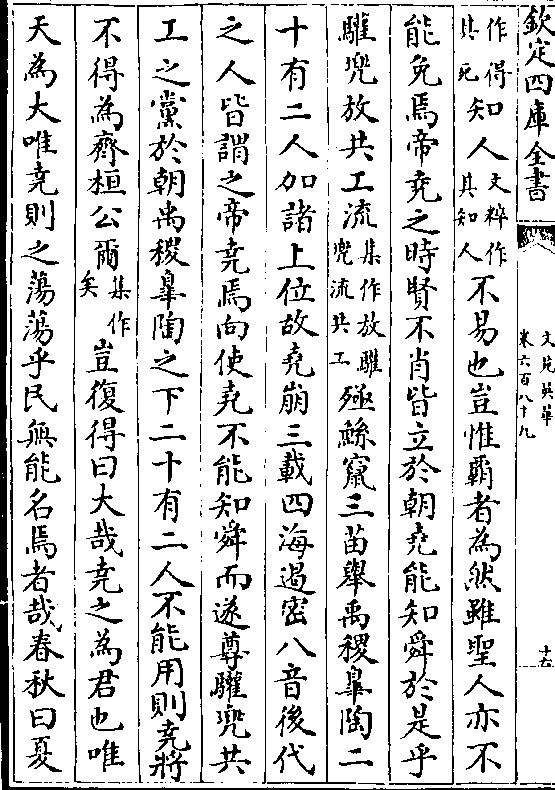 欽定四庫全書
文苑英華
卷六百八十九
十五
作得知其死知人文粹作其知人不易也豈惟霸者為然雖聖人亦不
能免焉帝堯之時賢不肖皆立於朝堯能知舜於是乎
驩兜放共工流集作放驩兜流共工殛鯀竄三苗舉禹稷臯陶二
十有二人加諸上位故堯崩三載四海遏密八音後代
之人皆謂之帝堯焉向使堯不能知舜而遂尊驩兜共
工之黨於朝禹稷臯陶之下二十有二人不能用則堯將
不得為齊桓公爾集作矣豈復得曰大哉堯之為君也唯
天為大唯堯則之蕩蕩乎民無能名焉者哉春秋曰夏